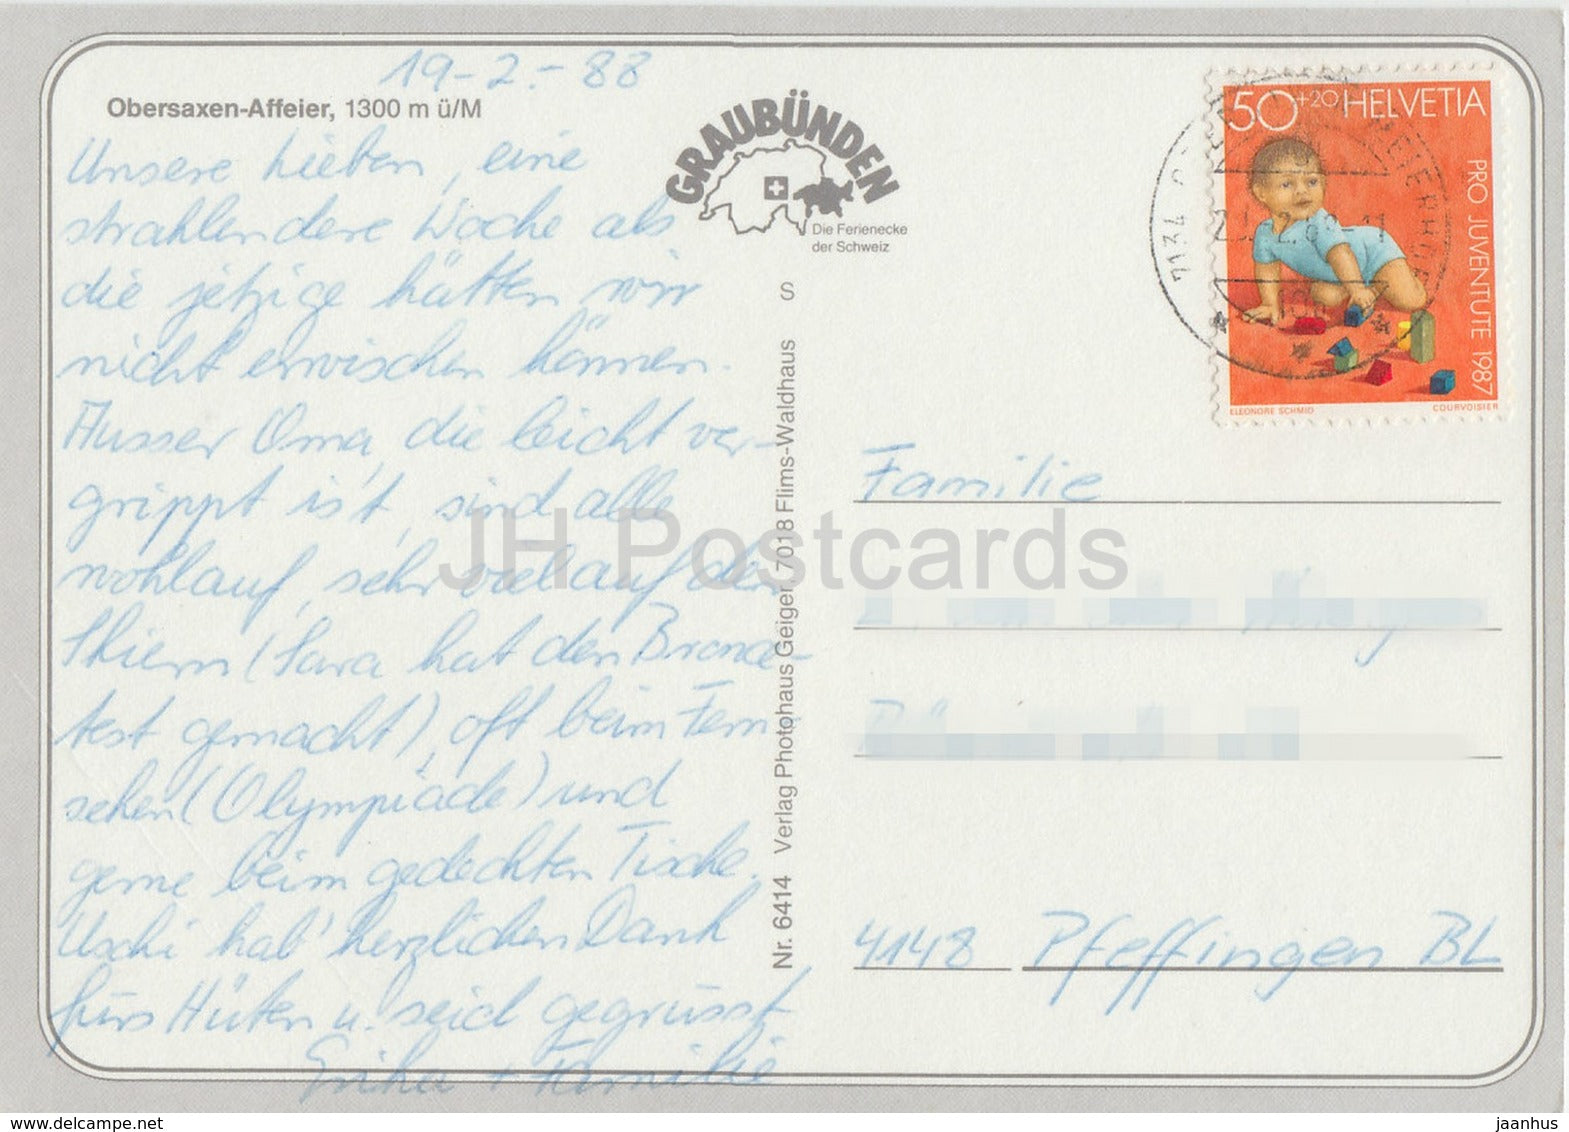 19-2.-88
Obersaxen-Affeier, 1300 m ü/M
Unsere Lieben, eine
strahlendere Woche als
die jetzige hätten wir
nicht erwischen können.
Ausser Oma, die leicht ver-
grippt ist, sind alle
wohlauf, sehr viel auf den
Skiern (Sara hat den Bronce-
test gemacht), oft beim Fern-
sehen (Olympiade) und
gerne beim gedeckten Tische.
Uschi hab' herzlichen Dank
fürs Hüten u. seid gegrüsst
Erika + Familie
GRAUBÜNDEN
Die Ferienecke
der Schweiz
Nr. 6414 Verlag Photohaus Geiger, 7018 Flims-Waldhaus S
50+20 HELVETIA
PRO JUVENTUTE 1987
ELEONORE SCHMID COURVOISIER
7134
Familie
4148 Pfeffingen BL
JH Postcards
www.delcampe.net
jaanhus